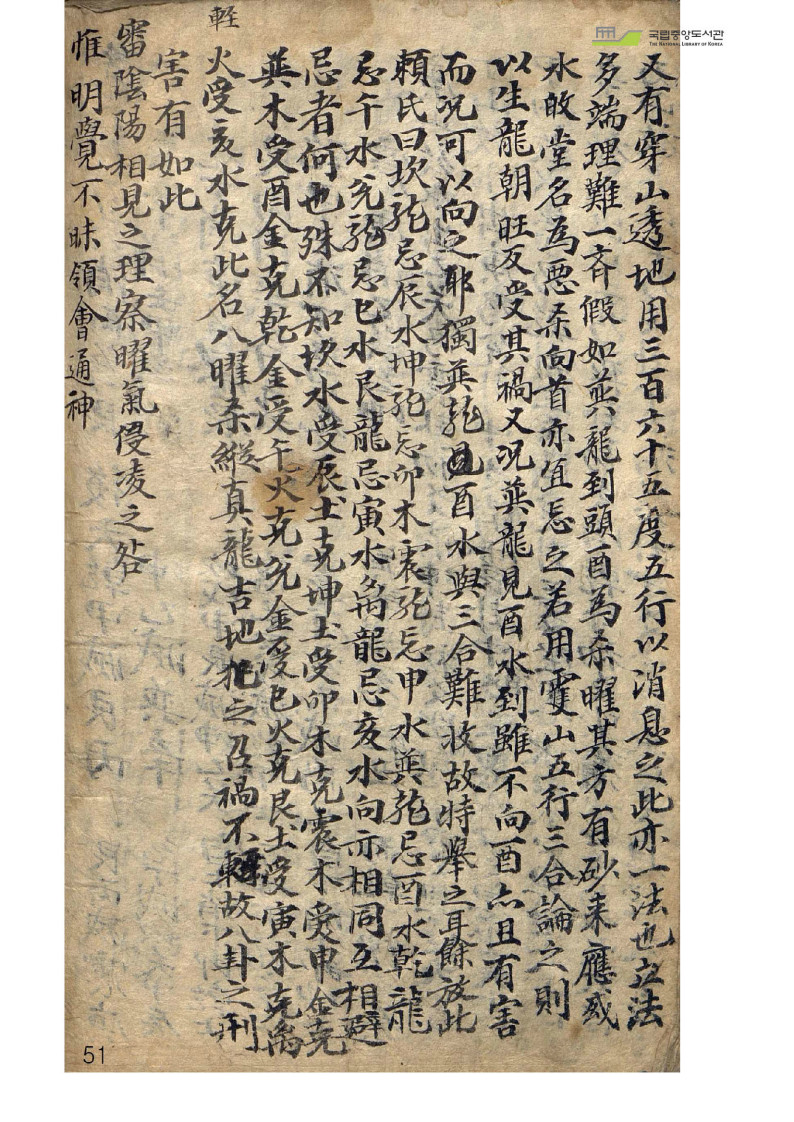 국립중앙도서관
THE NATIONAL LIBRARY OF KOREA
又有穿山透地用三百六十五度五行以消息之此亦一法也立法
多端理難一斉假如巽龍到頭酉為杀曜其方有砂来應或
水皈堂名為惡杀向首亦值忌之若用雙山五行三合論之則
以生龍朝旺反受其禍又况巽龍見酉水到雖不向酉亦且有害
而况可以向之耶獨巽龍見酉水與三合難收故特舉之耳餘放此
頼氏曰坎龍忌辰水坤龍忌卯木震龍忌甲水巽龍忌酉水乾龍
忌午水兌龍忌巳水艮龍忌寅水离龍忌亥水向亦相同互相避
忌者何也殊不知坎水受辰土克坤土受卯木克震木受申金克
巽木受酉金克乾金受午火克兌金受巳火克艮土受寅木克离
火受亥水克此名八曜杀縱真龍吉地犯之召禍不輕故八卦之刑
軽
害有如此
審陰陽相見之理察曜氣侵凌之咎
惟明覺不昧領會通神
51